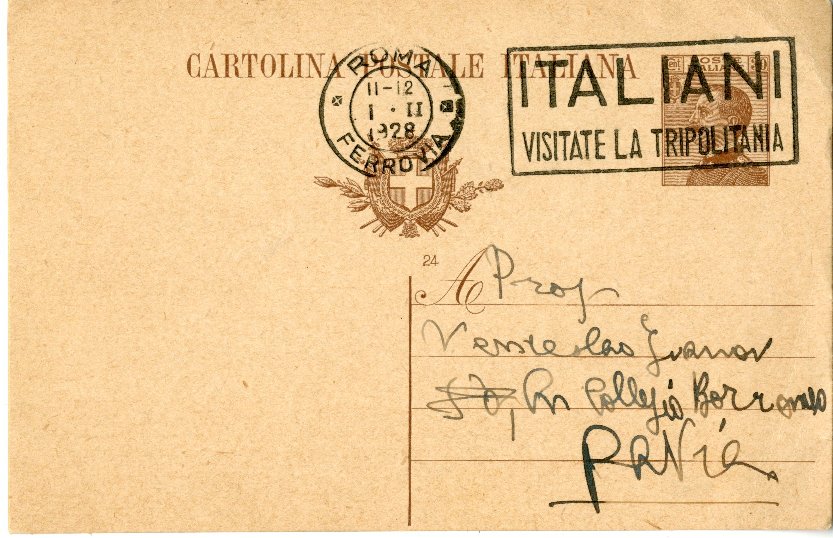 CARTOLINA POSTALE ITALIANA
ROMA
11-12
1 · II
1928
FERROVIA
ITALIANI
VISITATE LA TRIPOLITANIA
POSTE
ITALIANE
30
24
A Prof
Venceslao Ivanov
Collegio Borromeo
Pavia